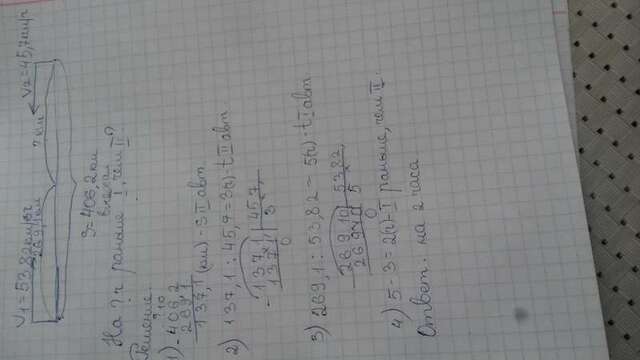 V₁=53,82км/ч V₂=45,7км/ч
269,1км ? км
S=406,2км
выехал
На ? ч раньше I, чем II?
Решение.
1) -406,2
269,1
137,1 (км) - S II авт
2) 137,1 : 45,7=3(ч) t II авт
-137,1 | 45,7
137 1 | 3
0
3) 269,1 : 53,82 - 5(ч) - t I авт
-269,10 | 53,82
269 10 | 5
0
4) 5-3=2(ч)-I раньше, чем II.
Ответ: на 2 часа